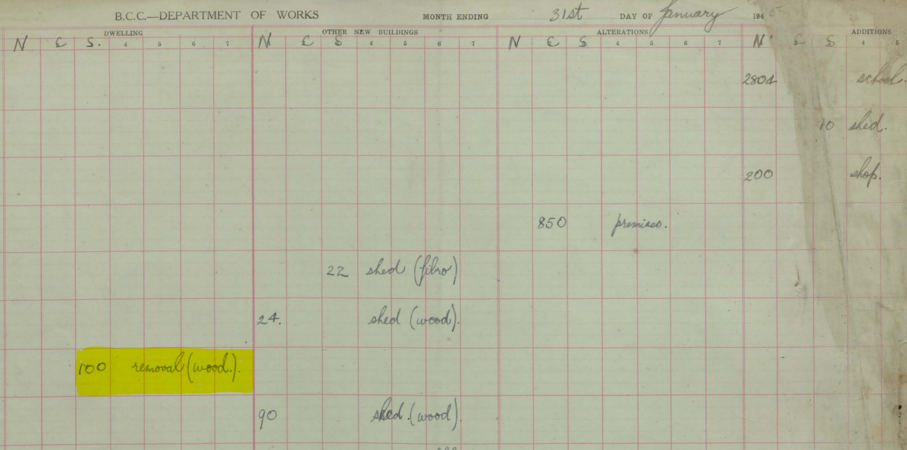 B.C.C.—DEPARTMENT OF WORKS MONTH ENDING 31st DAY OF January 194
DWELLING OTHER NEW BUILDINGS ALTERATIONS ADDITIONS
N £ S. 4 5 6 7 N £ S 4 5 6 7 N £ S 4 5 6 7 N £ S 4 5
2804 school.
10 shed.
200 shop.
850 premises.
22 shed (fibro)
24. shed (wood).
100 removal (wood).
90 shed. (wood).